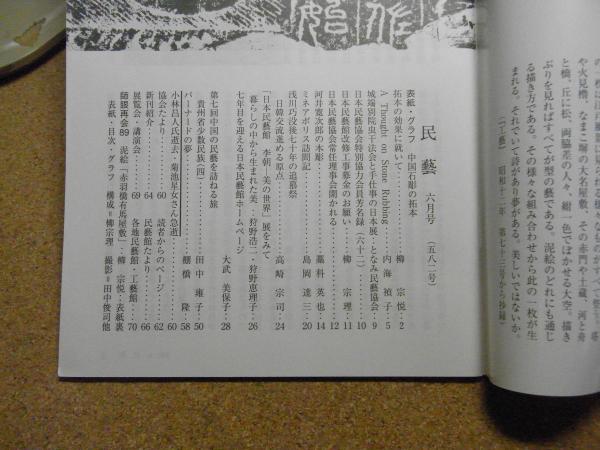 の、
や火見櫓、なまこ塀の大名屋敷、その赤門や土蔵、河と舟
と橋、丘に松、両脇差の人々、紺一色でぼかせる大空。描き
ぶりを見ればすべてが型の藝である。泥絵のどれにも通じ
る描き方である。その様々な組み合わせから此の一枚が生
まれる。それでいて詩があり夢がある。美しいではないか。
(「工藝」 昭和十二年 第七十三号から抄録)
民藝 六月号 (五八二号)
表紙・グラフ 中国石彫の拓本
拓本の効果に就いて 柳 宗悦・2
A Thought on Stone Rubbing 内海禎子・5
城端別院虫干法会と手仕事の日本展・となみ民藝協会・9
日本民藝協会特別協力会員芳名録(六十二) 10
日本民藝館改修工事募金のお願い 柳 宗理・11
日本民藝協会常任理事会開かれる 12
河井寛次郎の木彫 藁科英也・14
ミネアポリス訪問記 島岡達三・20
浅川巧没後七十年の追慕祭
日韓交流進める原点 高崎宗司・24
「日本民藝館 李朝・美の世界」展をみて
暮らしの中から生まれた美・狩野浩二・狩野恵理子・26
七年目を迎える日本民藝館ホームページ
大武美保子・28
第七回中国の民藝を訪ねる旅
貴州省少数民族(四) 田中雍子・50
バーナードの夢 棚橋 隆・58
小林昌人氏逝去・菊池星女さん急逝 60
協会たより 60 読者からのページ 62
新刊紹介 64 民藝館たより 66
展覧会・講演会 69 各地民藝館・工藝館 70
随縁再会89 泥絵「赤羽橋有馬屋敷」 柳 宗悦・表紙裏
表紙・目次・グラフ 構成=柳宗理・撮影=田中俊司他